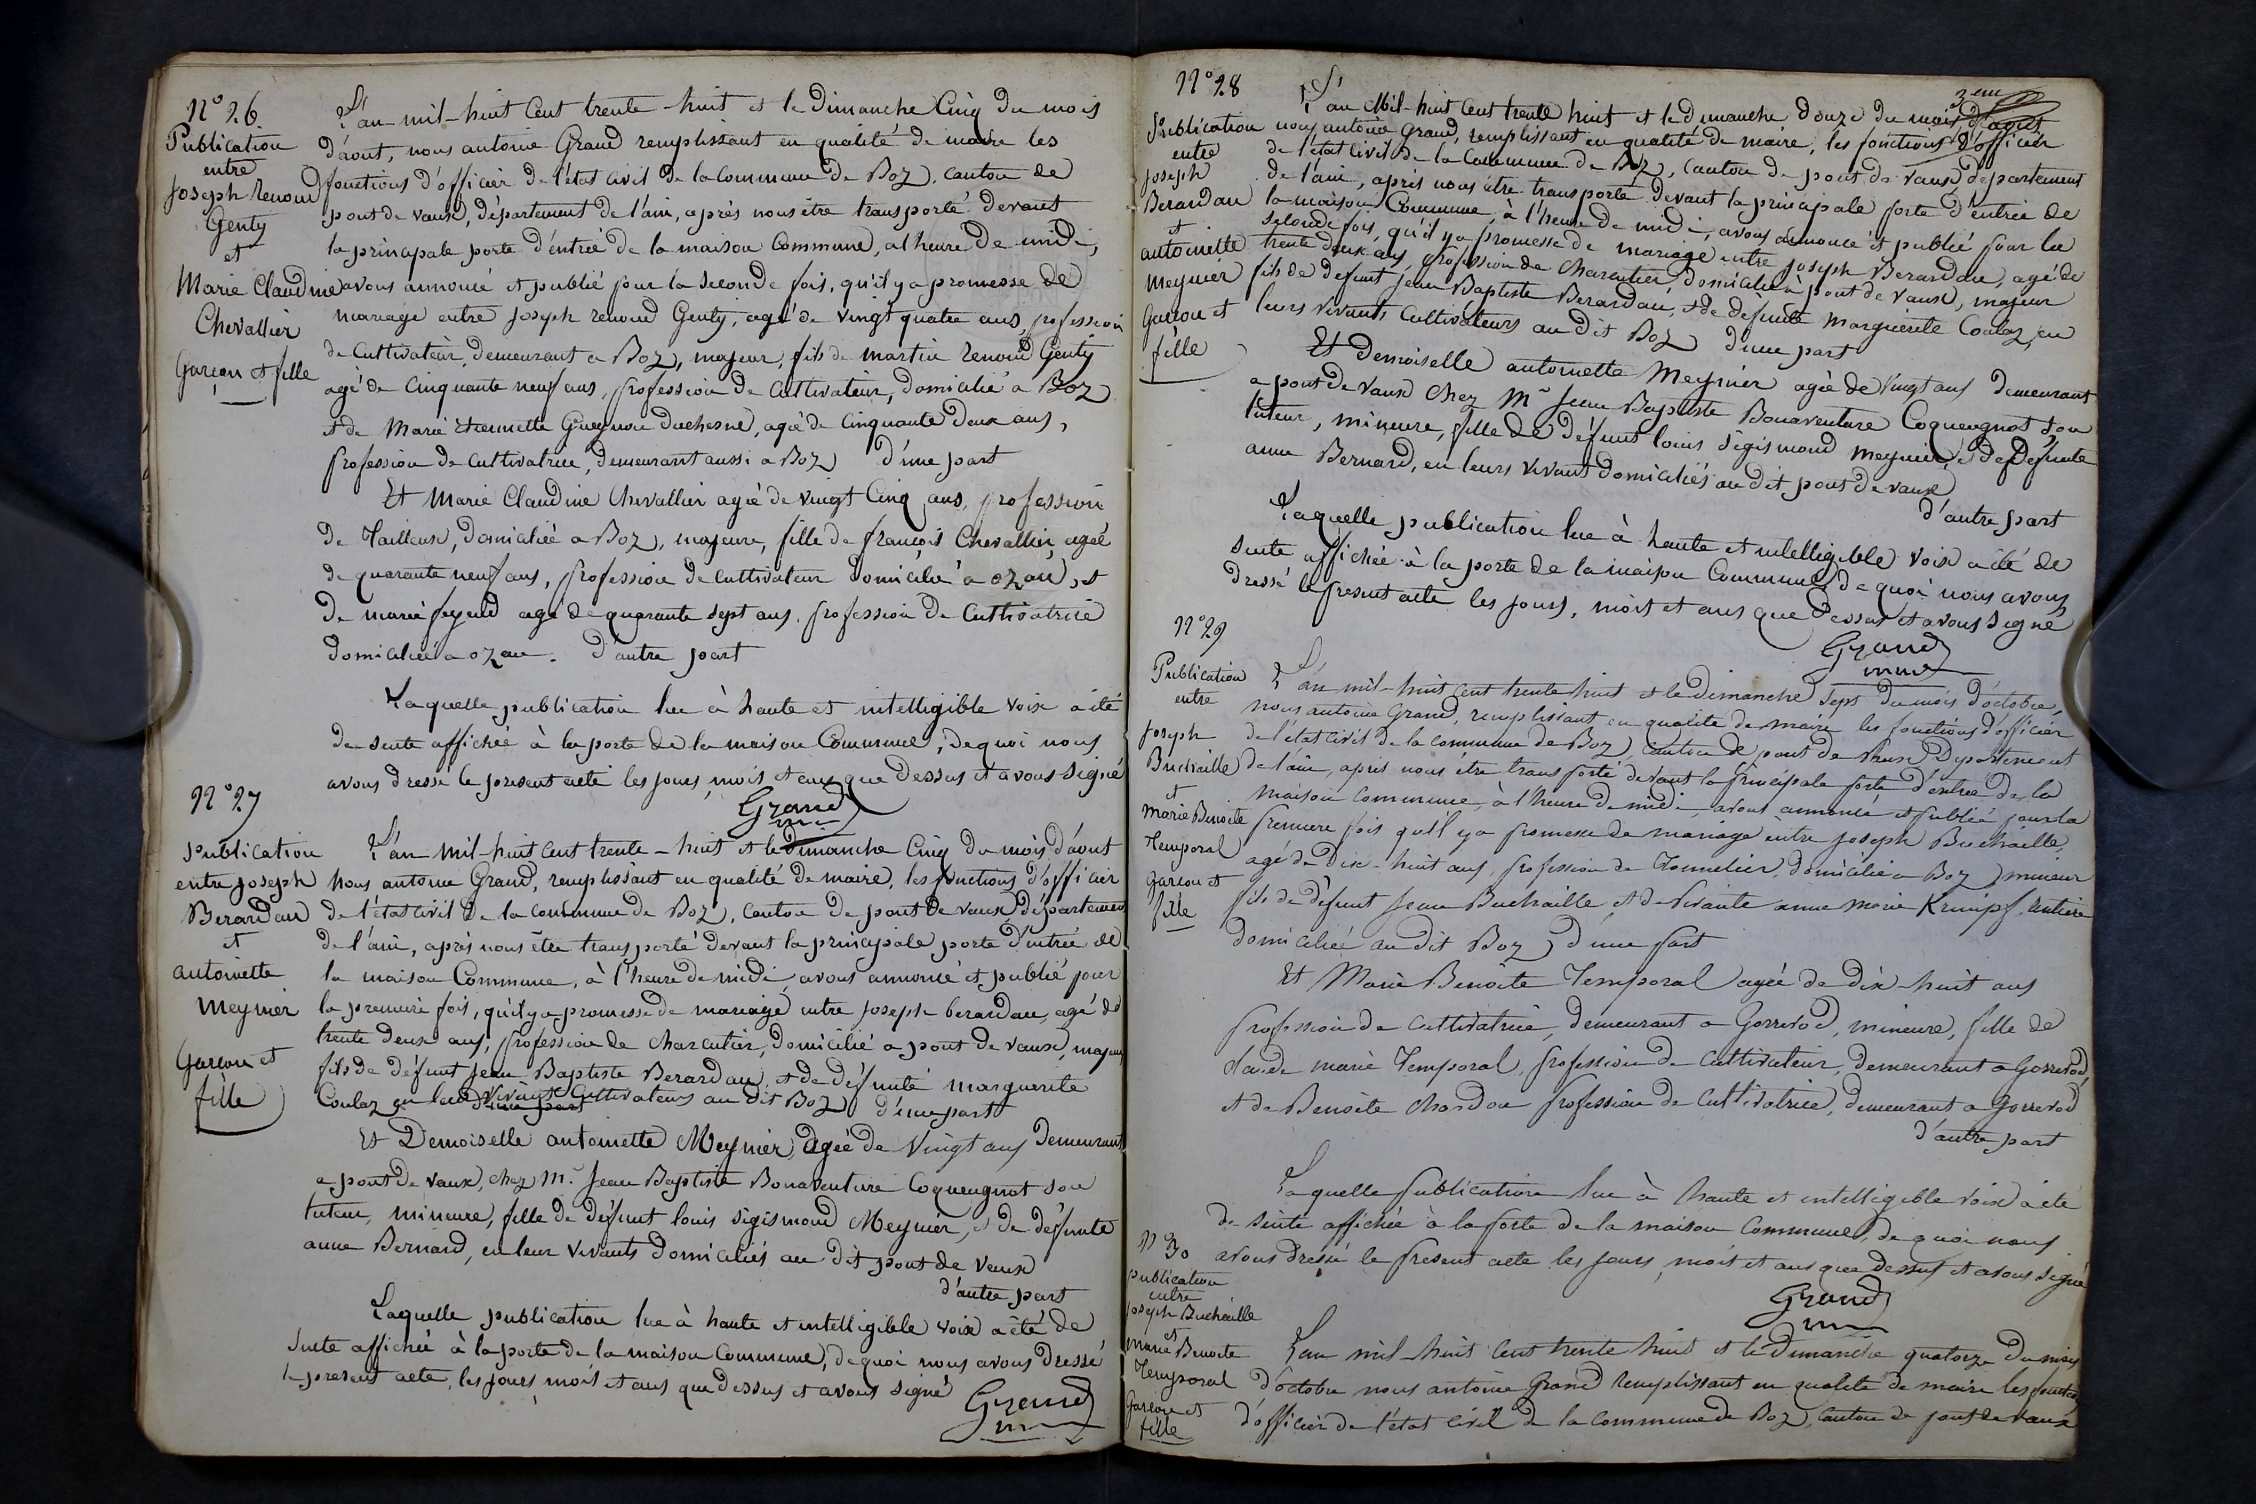 N° 26
Publication
entre
Joseph Renoud
Genty
et
Marie Claudine
Chevallier
Garcon et fille
L'an mil-huit cent trente-huit et le dimanche cinq du mois
d'aout, nous antoine Grand remplissant en qualité de maire les
fonctions d'officier de l'état civil de la commune de Boz, canton de
pont de vaux, département de l'ain, après nous être transporté devant
la principale porte d'entrée de la maison Commune, a l'heure de midi,
avons annoncé et publié pour la seconde fois, qu'il y a promesse de
mariage entre joseph renoud Genty, agé de vingt quatre ans, profession
de Cultivateur, demeurant a Boz, majeur, fils de martin renoud Genty
agé de cinquante neuf ans, profession de Cultivateur, domicilié a Boz
et de Marie duchesne, agée de Cinquante deux ans,
profession de Cultivatrice, demeurant aussi a Boz d'une part
Et Marie Claudine Chevallier agée de vingt Cinq ans, profession
de Tailleuse, domiciliée a Boz, majeure, fille de françois Chevallier, agée
de quarante neuf ans, profession de cultivateur domicilié a ozan, et
de marie feyeud agé de quarante sept ans, profession de Cultivatrice
domiciliée a ozan. d'autre part
Laquelle publication lue à haute et intelligible voix a été
de suite affichée à la porte de la maison Commune, de quoi nous
avons dressé le present acte les jours, mois et ans que dessus et avons signé
Grand
N° 27
Publication
entre joseph
Berardan
et
antoinette
Meynier
Garcon et
fille
L'an mil-huit cent trente-huit et le dimanche Cinq du mois d'aout
Nous antoine Grand, remplissant en qualité de maire, les fonctions d'officier
de l'état civil de la commune de Boz, canton de pont de vaux département
de l'ain, après nous être transporté devant la principale porte d'entrée de
la maison Commune, à l'heure de midi, avons annoncé et publié pour
la premiere fois, qu'il y a promesse de mariage entre joseph berardan, agé de
trente deux ans, profession de charcutier, domicilié a pont de vaux, majeur
fils de défunt Jean Baptiste Berardan, et de défunte marguerite
Coulaz en leurs vivants Cultivateurs au dit Boz d'une part
d'une part
Et Demoiselle antoinette Meynier, agée de vingt ans demeurant
a pont de vaux, chez Mr Jean Baptiste Bonaventure Coqueugnot son
tuteur, mineure, fille de défunt louis sigismond Meynier, et de défunte
anne Bernard, en leur vivants domiciliés au dit pont de vaux
d'autre part
Laquelle publication lue à haute et intelligible voix a été de
suite affichée à la porte de la maison Commune, de quoi nous avons dressé
le present acte, les jours mois et ans que dessus et avons signé
Grand
3eme
N° 28
Publication
entre
joseph
Berardan
et
antoinette
meynier
Garcon et
fille
L'an Mil-huit cent trente huit et le dimanche douze du mois d'aout
nous antoine Grand, remplissant en qualité de maire, les fonctions d'officier
de l'état civil de la Commune de Boz, canton de pont de vaux, département
de l'ain, après nous être transporté devant la principale porte d'entrée de
la maison Commune, à l'heure de midi, avons annoncé et publié pour la
seconde fois, qu'il y a promesse de mariage entre joseph Berardan, agé de
trente deux ans, profession de charcutier, domicilié à pont de vaux, majeur
fils de defunt Jean Baptiste Berardan, et de défunte Marguerite Coulaz en
leurs vivants Cultivateurs au dit Boz d'une part
Et demoiselle antoinette Meynier agée de vingt ans demeurant
a pont de vaux chez Mr Jean Baptiste Bonaventure Coqueugnot son
tuteur, mineure, fille de défunt louis sigismond meynier, et de défunte
anne Bernard, en leurs vivant domiciliés au dit pont de vaux
d'autre part
Laquelle publication lue à haute et intelligible voix a été de
suite affichée à la porte de la maison Commune, de quoi nous avons
dressé le present acte les jours, mois et ans que dessus et avons signé
Grand
N° 29
Publication
entre
joseph
Buchaille
et
Marie Benoite
Temporal
garcon et
fille
L'an mil-huit cent trente huit et le dimanche sept du mois d'octobre,
nous antoine Grand, remplissant en qualité de maire les fonctions d'officier
de l'état civil de la commune de Boz, canton de pont de vaux Département
de l'ain, après nous être transporté devant la principale porte d'entrée de la
maison commune, à l'heure de midi, avons annoncé et publié pour la
premiere fois qu'il y a promesse de mariage entre joseph Buchaille,
agé de Dix-huit ans, profession de Tonnelier, domicilié a Boz, mineur
fils de défunt Jean Buchaille et de vivante anne marie Krimpf, rentiere
domiciliée au dit Boz, d'une part
Et Marie Benoite Temporal agée de Dix-huit ans
profession de Cultivatrice, demeurant a Gorrevod, mineure, fille de
claude marie Temporal, profession de Cultivateur, demeurant a Gorrevod,
et de Benoite chardon profession de Cultivatrice, demeurant a gorrevod
d'autre part
Laquelle publication lue à haute et intelligible voix a été
de suite affichée à la porte de la maison commune, de quoi nous
avons dressé le present acte les jours, mois et ans que dessus et avons signé
Grand
N° 30
publication
entre
joseph Buchaille
et
Marie Benoite
Temporal
garcon et
fille
L'an mil-huit cent trente huit et le dimanche quatorze du mois
d'octobre nous antoine Grand remplissant en qualité de maire les fonctions
d'officier de l'état civil de la commune de Boz, canton de pont de vaux